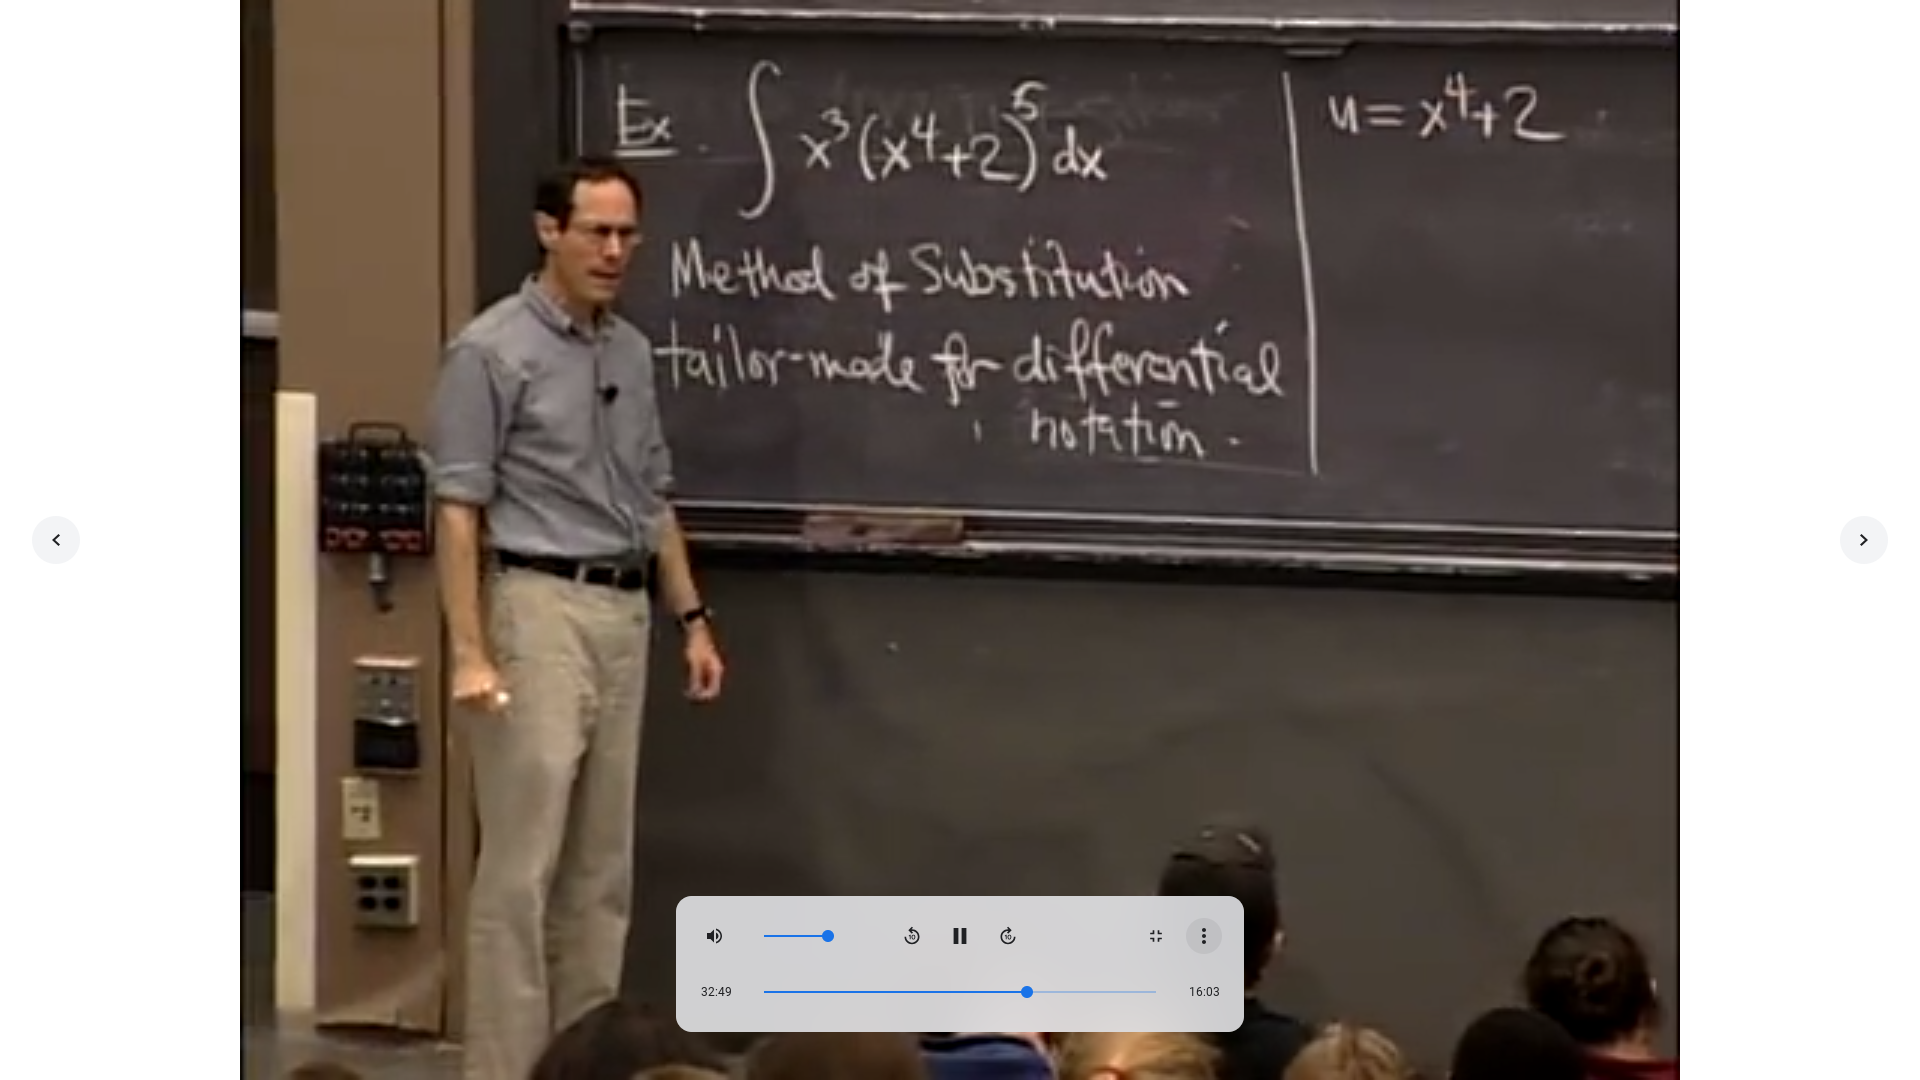 Ex ∫ x³(x⁴+2)⁵ dx
Method of Substitution
tailor-made for differential
notation.
u = x⁴+2
32:49
16:03